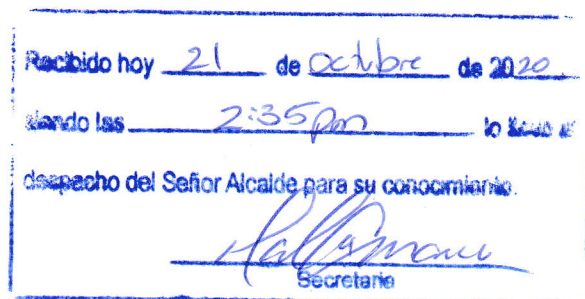 Recibido hoy 21 de Octubre de 2020
siendo las 2:35pm lo llevo al
despacho del Señor Alcalde para su conocimiento.
Secretario